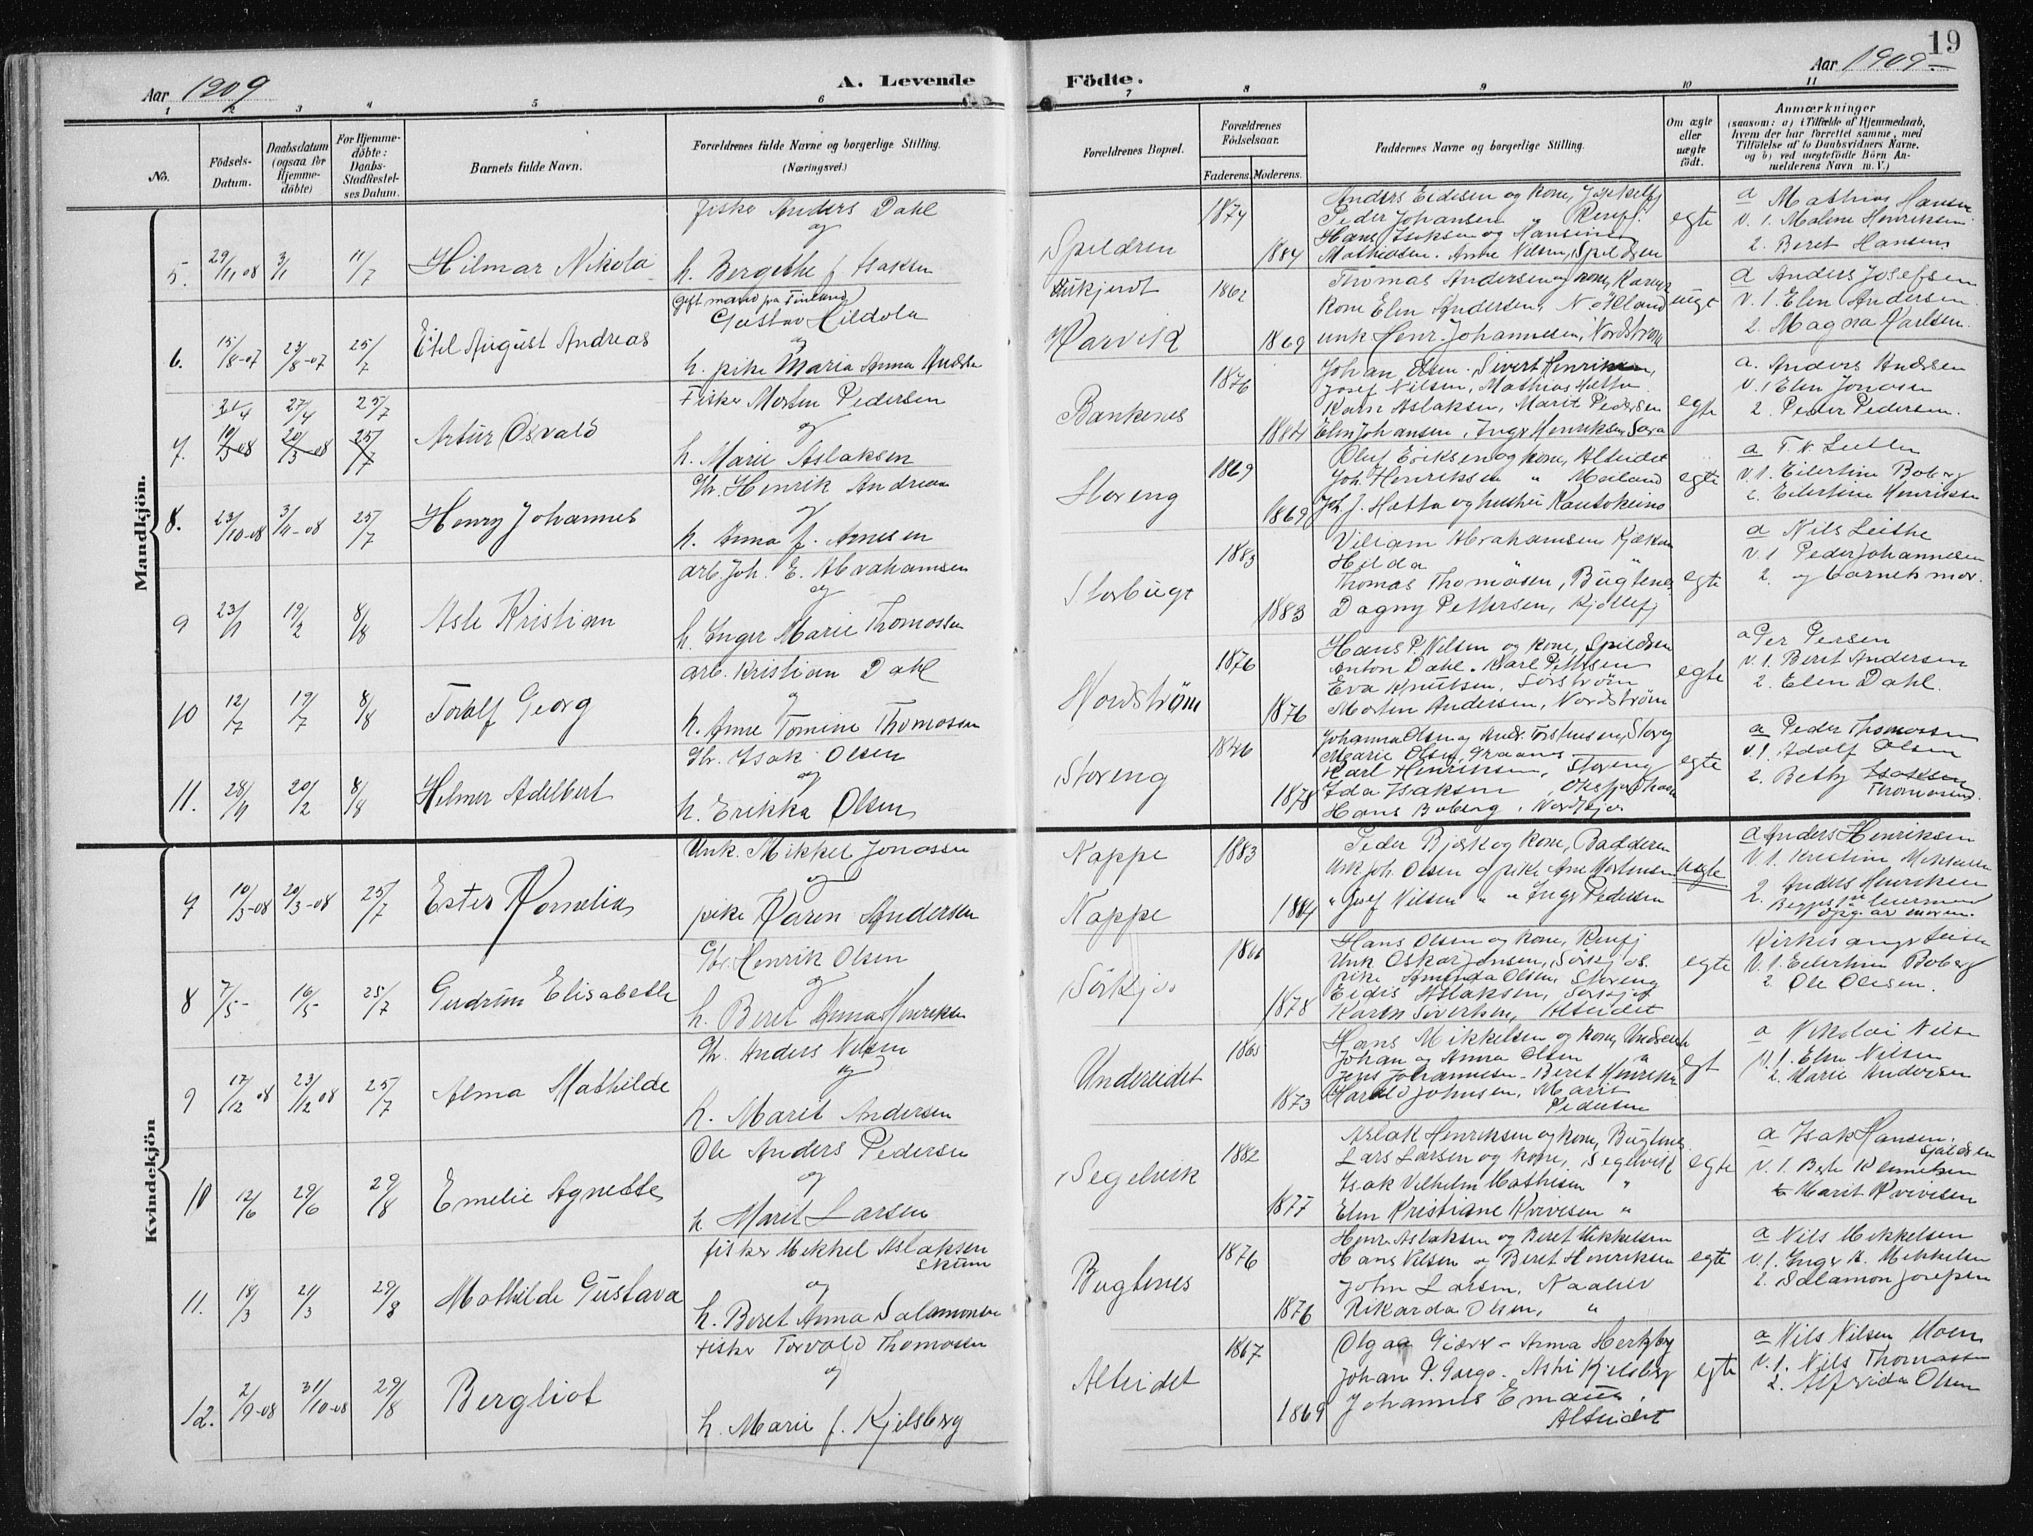 19
Aar 1909
A. Levende
Födte.
Aar 1909
1 2 3 4 5 6 7 8 9 10 11
No.
Födsels-
Datum.
Daabsdatum
(ogsaa for
Hjemme-
döbte)
For Hjemme-
döbte:
Daabs-
Stadfæstel-
ses Datum.
Barnets fulde Navn.
Forældrenes fulde Navne og borgerlige Stilling.
(Næringsvei.)
Forældrenes Bopæl.
Forældrenes
Födselsaar.
Faderens. Moderens.
Faddernes Navne og borgerlige Stilling.
Om ægte
eller
uægte
födt.
Anmærkninger
(saasom: a) i Tilfælde af Hjemmedaab,
hvem der har forrettet samme, med
Tilföielse af to Daabsvidners Navne.
og b) ved uegtefödte Börn An-
melderens Navn m. V.)
Mandkjön.
5. 29/11 08 3/1 11/7 Hilmar Nikolai
fisker Anders Dahl
og
h. Bergethe f. Isaksen
Spildren
1874
1884
Anders Eidesen og kone,
Peder Johansen " Renfj.
Hans Isaksen og Hansine
Mathiasen. Anne Nilsen, Spildren
egte
a Mathias Hansen
v. 1. Maline Henriksen
2. Beret Hansen
6. 15/8-07 23/8-07 25/7 Etil August Andreas
(gift mand fra Finland)
Gustav Hildola
og
h. pike Maria Anna Andersen
Ukjendt
Karvik
1862
1869
Thomas Andersen og kone,
kone Elen Andersen, Nökland
unk Henr. Johannesen, Nordström
uegt
a Anders Josefsen
v. 1. Elen Andersen
2. Magna Karlsen.
7. 21/4 27/4 25/7
10/3-08 20/3-08 25/7 Artur Osvald
Fisker Morten Pedersen
og
h. Marie Aslaksen
Bankenes
1876
1884
Johan Olsen. Sivert Henriksen,
Josef Nilsen, Mathias Hetta.
Karn Aslaksen, Marit Pedersen
Elen Johansen, Inger Henriksen
egte
a. Anders Andersen
v. 1 Elen Jonassen
2. Peder Pedersen.
8. 23/10-08 3/11-08 25/7 Henry Johannes
Gbr. Henrik Andreas
og
h. Anna f. Arnesen
Storeng
1869
1869
Oluf Eriksen og kone, Alteidet
Joh. Henriksen " Meiland
Joh. J. Hætta og hustru Kautokeino
egte
a T. N. Leithe
v. 1. Eilertine Boberg
2. Eilertine Henriksen
9 23/1 19/2 8/8 Asle Kristian
arb. Joh. E. Abrahamsen
og
h. Inger Marie Thomassen
Storbugt
1883
1883
Viliam Abrahamsen
Hilda
Thomas Thomasen, Bugtenes
Dagny Pettersen, Kjöllefj
egte
a Nils Leithe
v. 1 Peder Johannesen
2. og barnets mor.
10 12/7 17/7 8/8 Torolf Georg
arb. Kristian Dahl
og
h. Anne Tomine Thomassen
Nordström
1876
1876
Hans P. Nilsen og kone, Spildren
Anton Dahl. Karl Pettersen
Eva Knutsen, Sörström
Morten Andersen, Nordström
egte
a Per Persen
v. 1. Beret Andersen
2. Elen Dahl.
11. 28/11 20/2 8/8 Helmer Adelbert
Gbr. Isak Olsen
og
h. Erikka Olsen
Storeng
1846
1878
Johanna Olsen og Storeng
Marie Olsen,
Karl Henriksen, Storeng
Ida Isaksen
Hans Boberg,
egte
a Peder Thomassen
v. 1. Adolf Olsen
2. Betty Isaksen
Thomassen.
Kvindekjön
7 10/3-08 20/3-08 25/7 Ester Kornelia
Unk. Mikkel Jonassen
og
pike Karen Andersen
Nappe
Nappe
1883
1884
Peder Björk og kone, Badderen
Unk Joh. Olsen og pike Ane Mortensen
" Josef Nilsen " " Inger Pedersen
uegte
a Anders Henriksen
v. 1. Kristine Mikkelsen
2. Anders Henriksen
opg. av moren.
8 7/5- 16/5 25/7 Gudrun Elisabeth
Gbr. Henrik Olsen
og
h. Beret Anna Henriksen
Sörkjos
1878
Hans Olsen og kone, Renfj
Unk Oskar Jensen, Sörkjos.
pike Amanda Olsen, Storeng
Eidis Aslaksen, Sörkjos
Karen Siverksen, Alteidet
egte
v. 1. Eilertine Boberg
2. Ole Olesen.
9 17/12 08 23/12 08 25/7 Alma Mathilde
Gbr. Anders Nilsen
og
h. Maret Andersen
Undereidet
1873
Hans Mikkelsen og kone, Undereidet
Johan og Anna Olsen "
Jens Johannesen. Beret Henriksen
Harald Johnsen, Marit
Pedersen
egt
a Nikolai Nilsen
v. 1. Elen Nilsen
2. Marie Andersen
10 12/6 29/6 29/8 Emelie Agnethe
Ole Anders Pedersen
og
h Marit Larsen
Segelvik
1882
1877
Aslak Henriksen og kone, Bugtenes
Lars Larsen og kone, Segelvik
Isak Vilhelm Mathisen "
Elen Kristiane Kvivesen "
egte
a Isak Hansen.
v. 1. Berte
Marit Kvivesen
11. 18/3 21/3 29/8 Mathilde Gustava
fisker Mikkel Aslaksen
Skum
og
h. Beret Anna Salamonsen
Bugtenes
1876
1876
Henr. Aslaksen og Beret Mikkelsen
Hans Nilsen og Beret Henriksen
John Larsen,
Rikarda Olsen, "
egte
a Nils Mikkelsen
v. 1. Inger A. Mikkelsen
2. Salamon Josefsen
12. 2/9-08 31/10-08 29/8 Bergliot
Fisker Torvald Thomassen
og
h. Marie f. Kjelsberg
Alteidet
1867
1869
Olga Anna
Johan P. Kjelsberg
Johannes
Alteidet
egte
a Nils Nilsen Moen
v. 1. Nils Thomassen
2. Alfrida Olsen